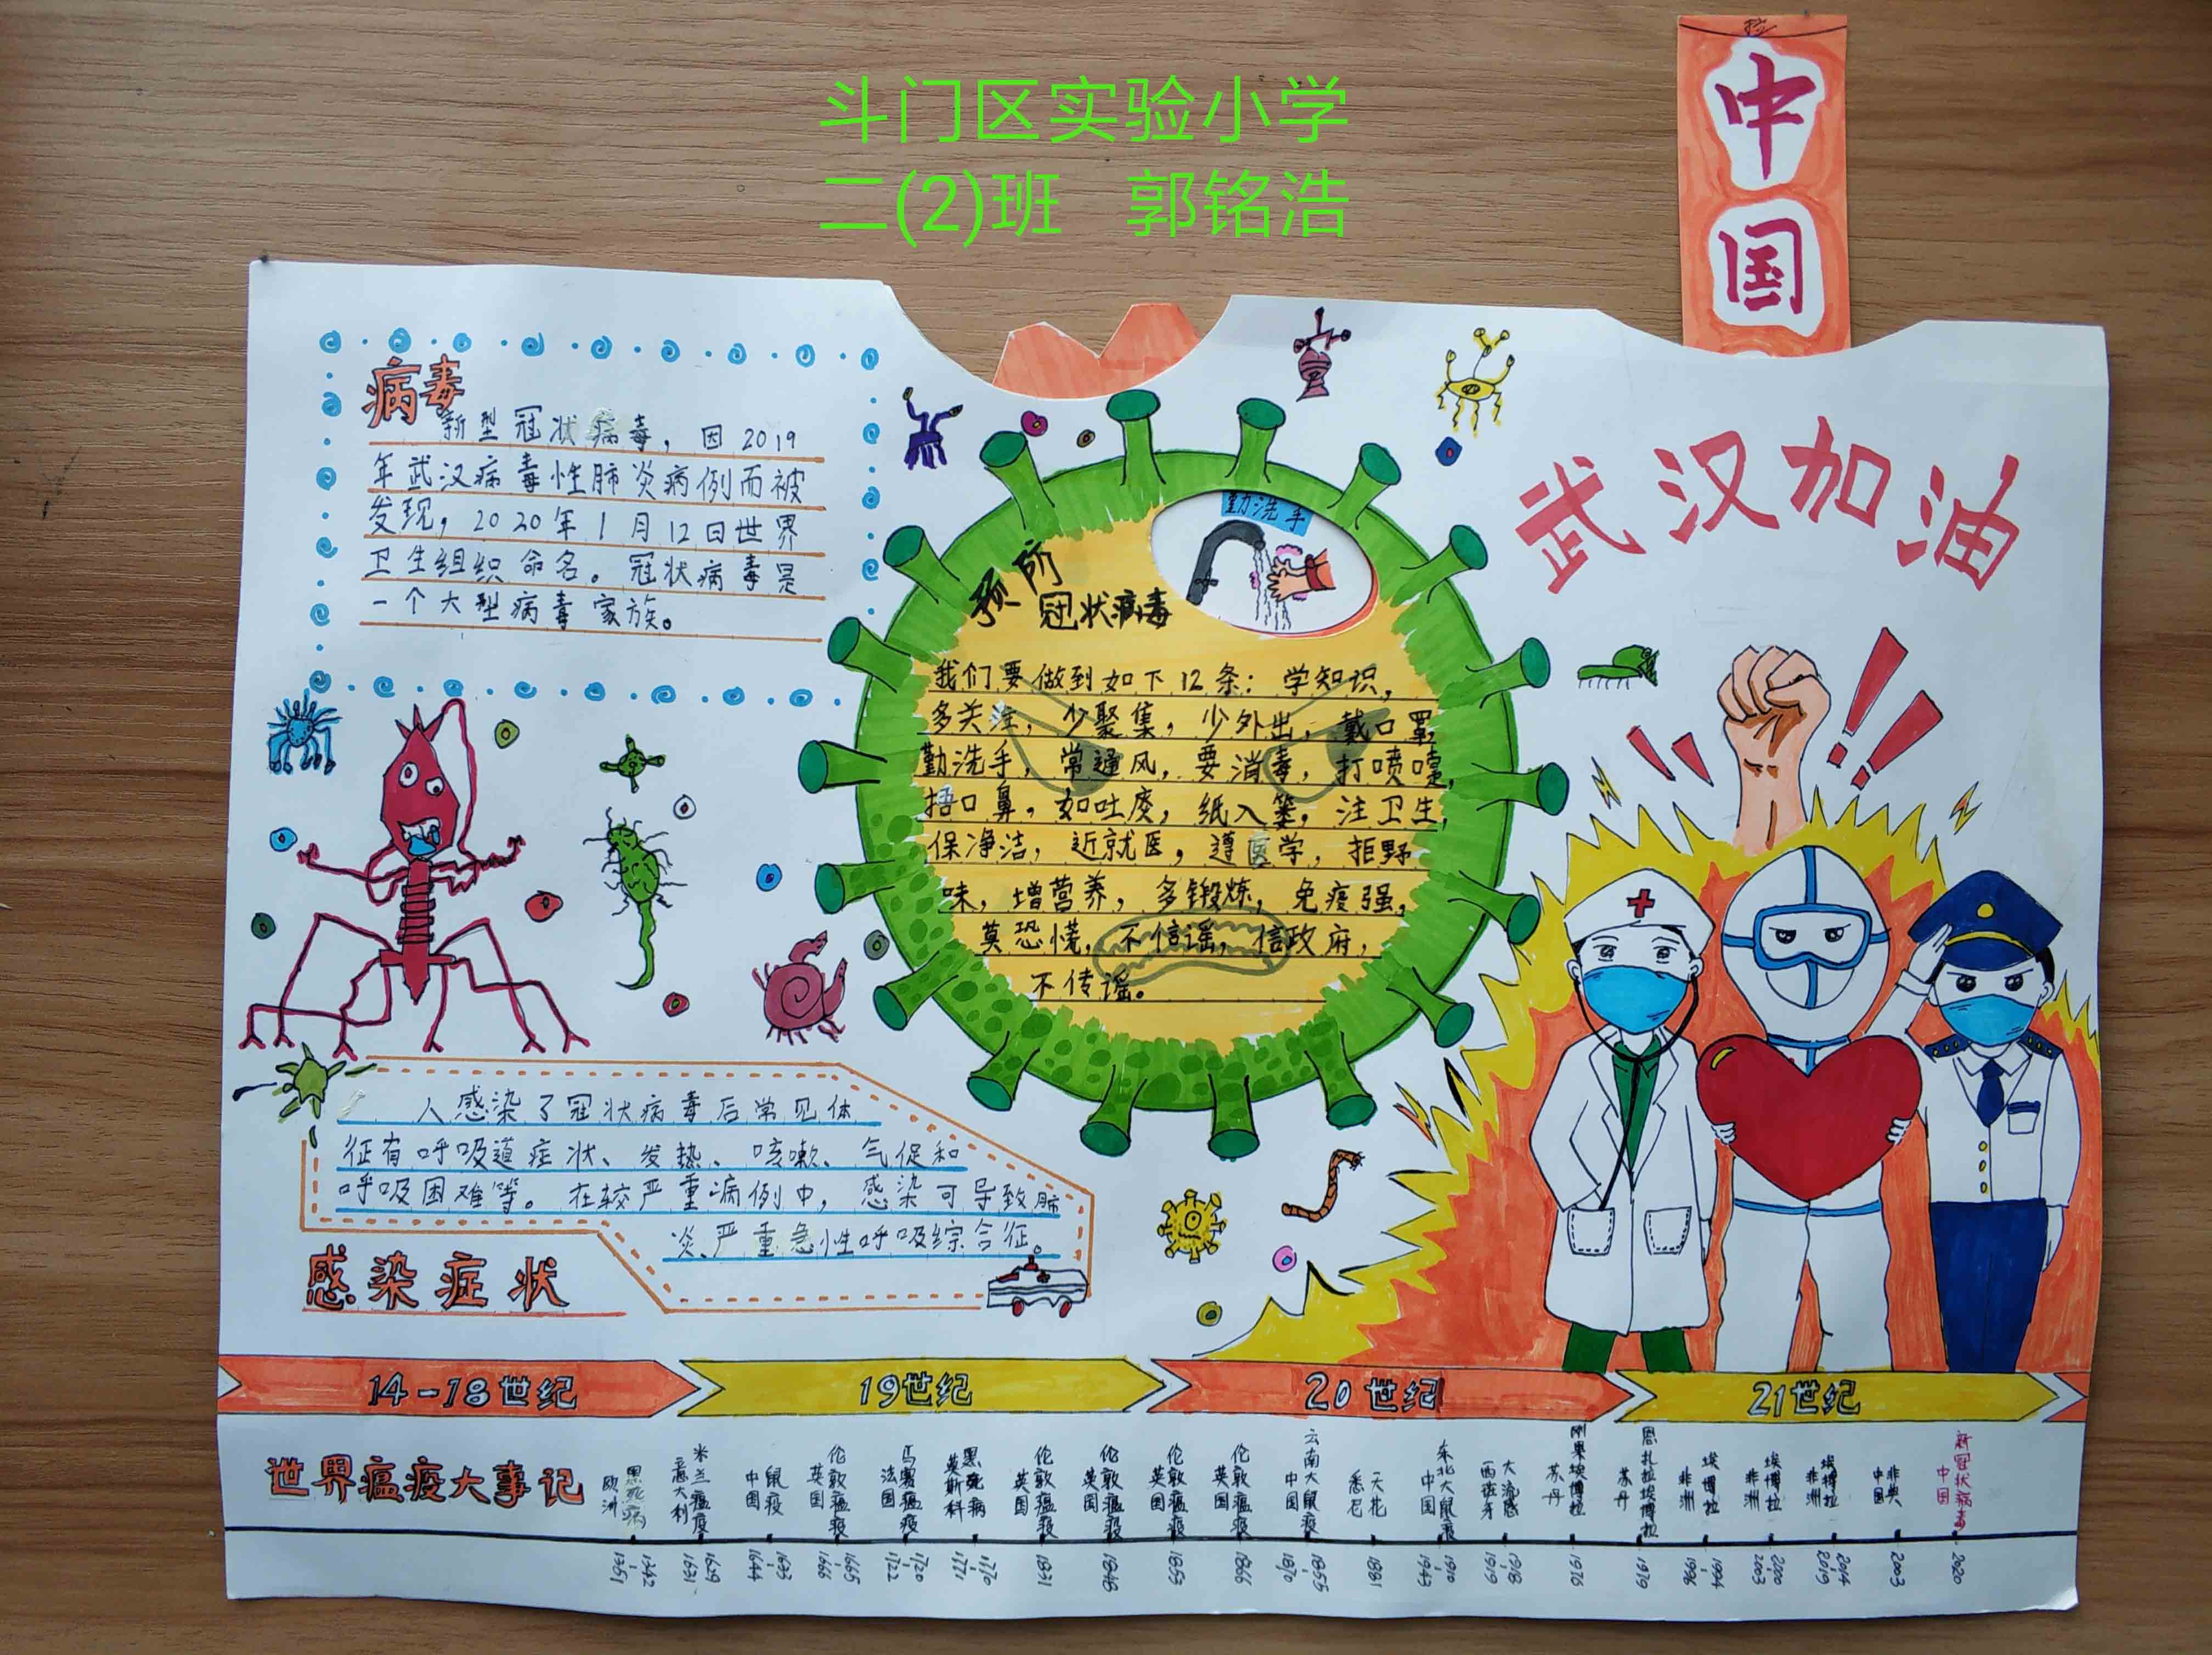 斗门区实验小学
二(2)班 郭铭浩
中国
病毒
新型冠状病毒，因2019
年武汉病毒性肺炎病例而被
发现，2020年1月12日世界
卫生组织命名。冠状病毒是
一个大型病毒家族。
勤洗手
预防
冠状病毒
我们要做到如下12条：学知识，
多关注，少聚集，少外出，戴口罩，
勤洗手，常通风，要消毒，打喷嚏，
捂口鼻，如吐痰，纸入篓，注卫生，
保净洁，近就医，遵医学，拒野
味，增营养，多锻炼，免疫强，
莫恐慌，不信谣，信政府，
不传谣。
武汉加油
!!
人感染了冠状病毒后常见体
征有呼吸道症状、发热、咳嗽、气促和
呼吸困难等。在较严重病例中，感染可导致肺
炎、严重急性呼吸综合征。
感染症状
14-18世纪
19世纪
20世纪
21世纪
世界瘟疫大事记
欧洲 黑死病
意大利 米兰瘟疫
中国 鼠疫
英国 伦敦瘟疫
法国 马赛瘟疫
莫斯科 黑死病
英国 伦敦瘟疫
英国 伦敦瘟疫
英国 伦敦瘟疫
英国 伦敦瘟疫
中国 云南大鼠疫
悉尼 天花
中国 东北大鼠疫
西班牙 大流感
苏丹 刚果埃博拉
苏丹 恩扎拉埃博拉
非洲 埃博拉
非洲 埃博拉
非洲 埃博拉
中国 非典
中国 新冠状病毒
1351 1342
1631 1629
1644 1633
1666 1665
1722 1720
1771 1770
1831
1848
1853
1866
1870 1855
1881
1943 1910
1919 1918
1976
1979
1996 1994
2003 2000
2019 2014
2003
2020